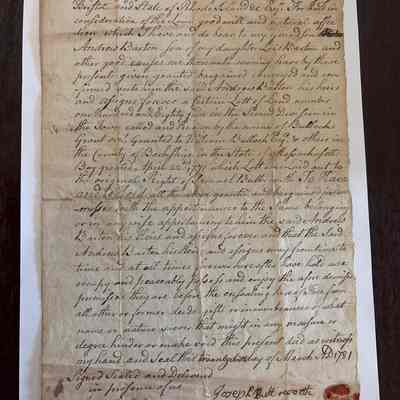 Bristol and State of Rhode Island &c Esqr. For and in
consideration of the Love good will and natural affec
tion which I have and do bear to my grandson
Andrew Barton son of my daughter Lois Barton and
other good causes me hereunto moving have by these
presents given granted bargained conveyed and con
firmed unto him the said Andrew Barton his heirs
and assigns forever a Certain Lott of Land number
one hundred and Eighty six in the Second Division in
the Town called and known by the name of Bullocks
Grant or Granted to William Bullock Esqr. & others in
the County of Berkshire in the State of Massachusetts
Bay granted April 1771 which Lott was laid out to
the original Right of Samuel Butterworth To Have
and to hold all the above granted and bargained prem
isses with the appurtenances to the same belonging
or in wise appertaining to him the said Andrew
Barton his heirs and assigns forever and that the said
Andrew Barton his heirs and assigns may from time to
time and at all times forever hereafter have hold use
occupy and peaceably possess and enjoy the afore demised
premises they are before the ensealing hereof free from
all other or former deeds gifts or incumbrances of what
name or nature soever that might in any measure or
degree hinder or make void this present deed as witness
my hand and Seal this twenty day of March AD 1781
Signed Sealed and Delivered
in presence of us
Joseph Butterworth